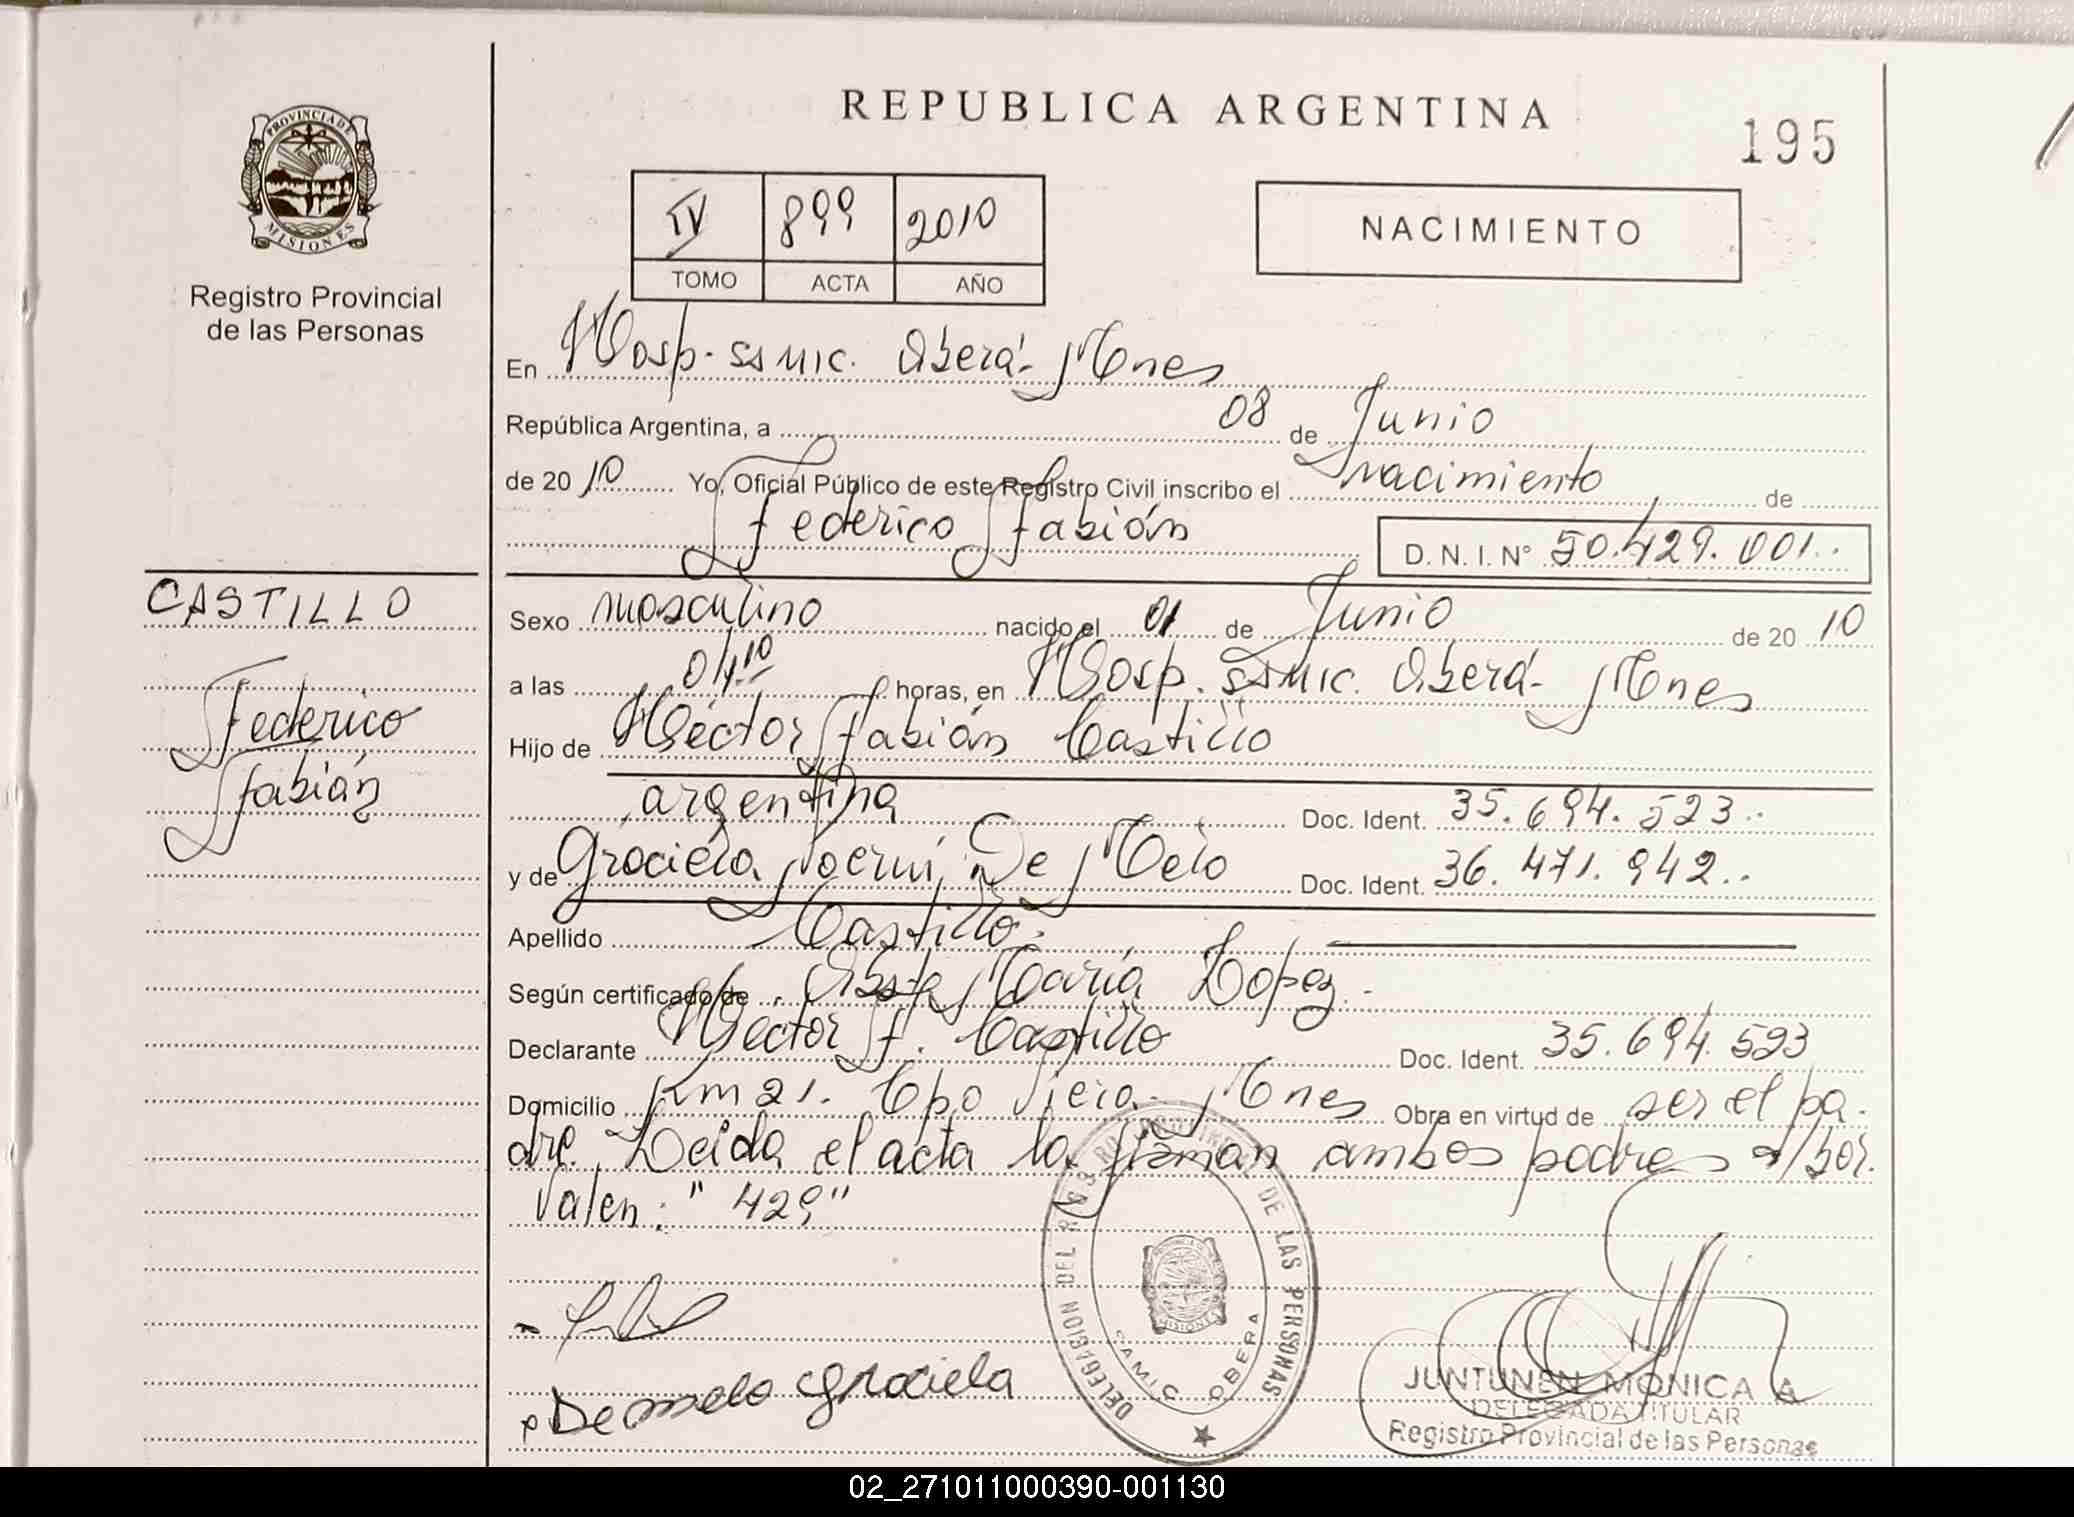 REPUBLICA ARGENTINA
195
PROVINCIA DE
MISIONES
Registro Provincial
de las Personas
IV 899 2010
TOMO ACTA AÑO
NACIMIENTO
En Hosp. SSMIC. Oberá- Mnes
República Argentina, a 08 de Junio
de 20 10 Yo, Oficial Público de este Registro Civil inscribo el nacimiento de
Federico Fabián
D. N. I. N° 50.429.001..
CASTILLO
Federico
Fabián
Sexo masculino nacido el 01 de Junio de 20 10
a las 04,10 horas, en Hosp. SSMIC. Oberá- Mnes
Hijo de Héctor Fabián Castillo
argentina Doc. Ident. 35.694.523..
y de Graciela Noemi De Melo Doc. Ident. 36.471.942..
Apellido Castillo.
Según certificado de María Lopez.
Declarante Hector F. Castillo Doc. Ident. 35.694.523
Domicilio Km 21. Cpo Viera- Mnes Obra en virtud de ser el pa-
dre. Leida el acta la firman ambos padres s/bor.
Valen: "429"
De melo Graciela
DELEGACION DEL REG. PROVINCIAL DE LAS PERSONAS
MISIONES
SAMIC OBERA
JUNTUNEN MONICA A
DELEGADA TITULAR
Registro Provincial de las Personas
02_271011000390-001130